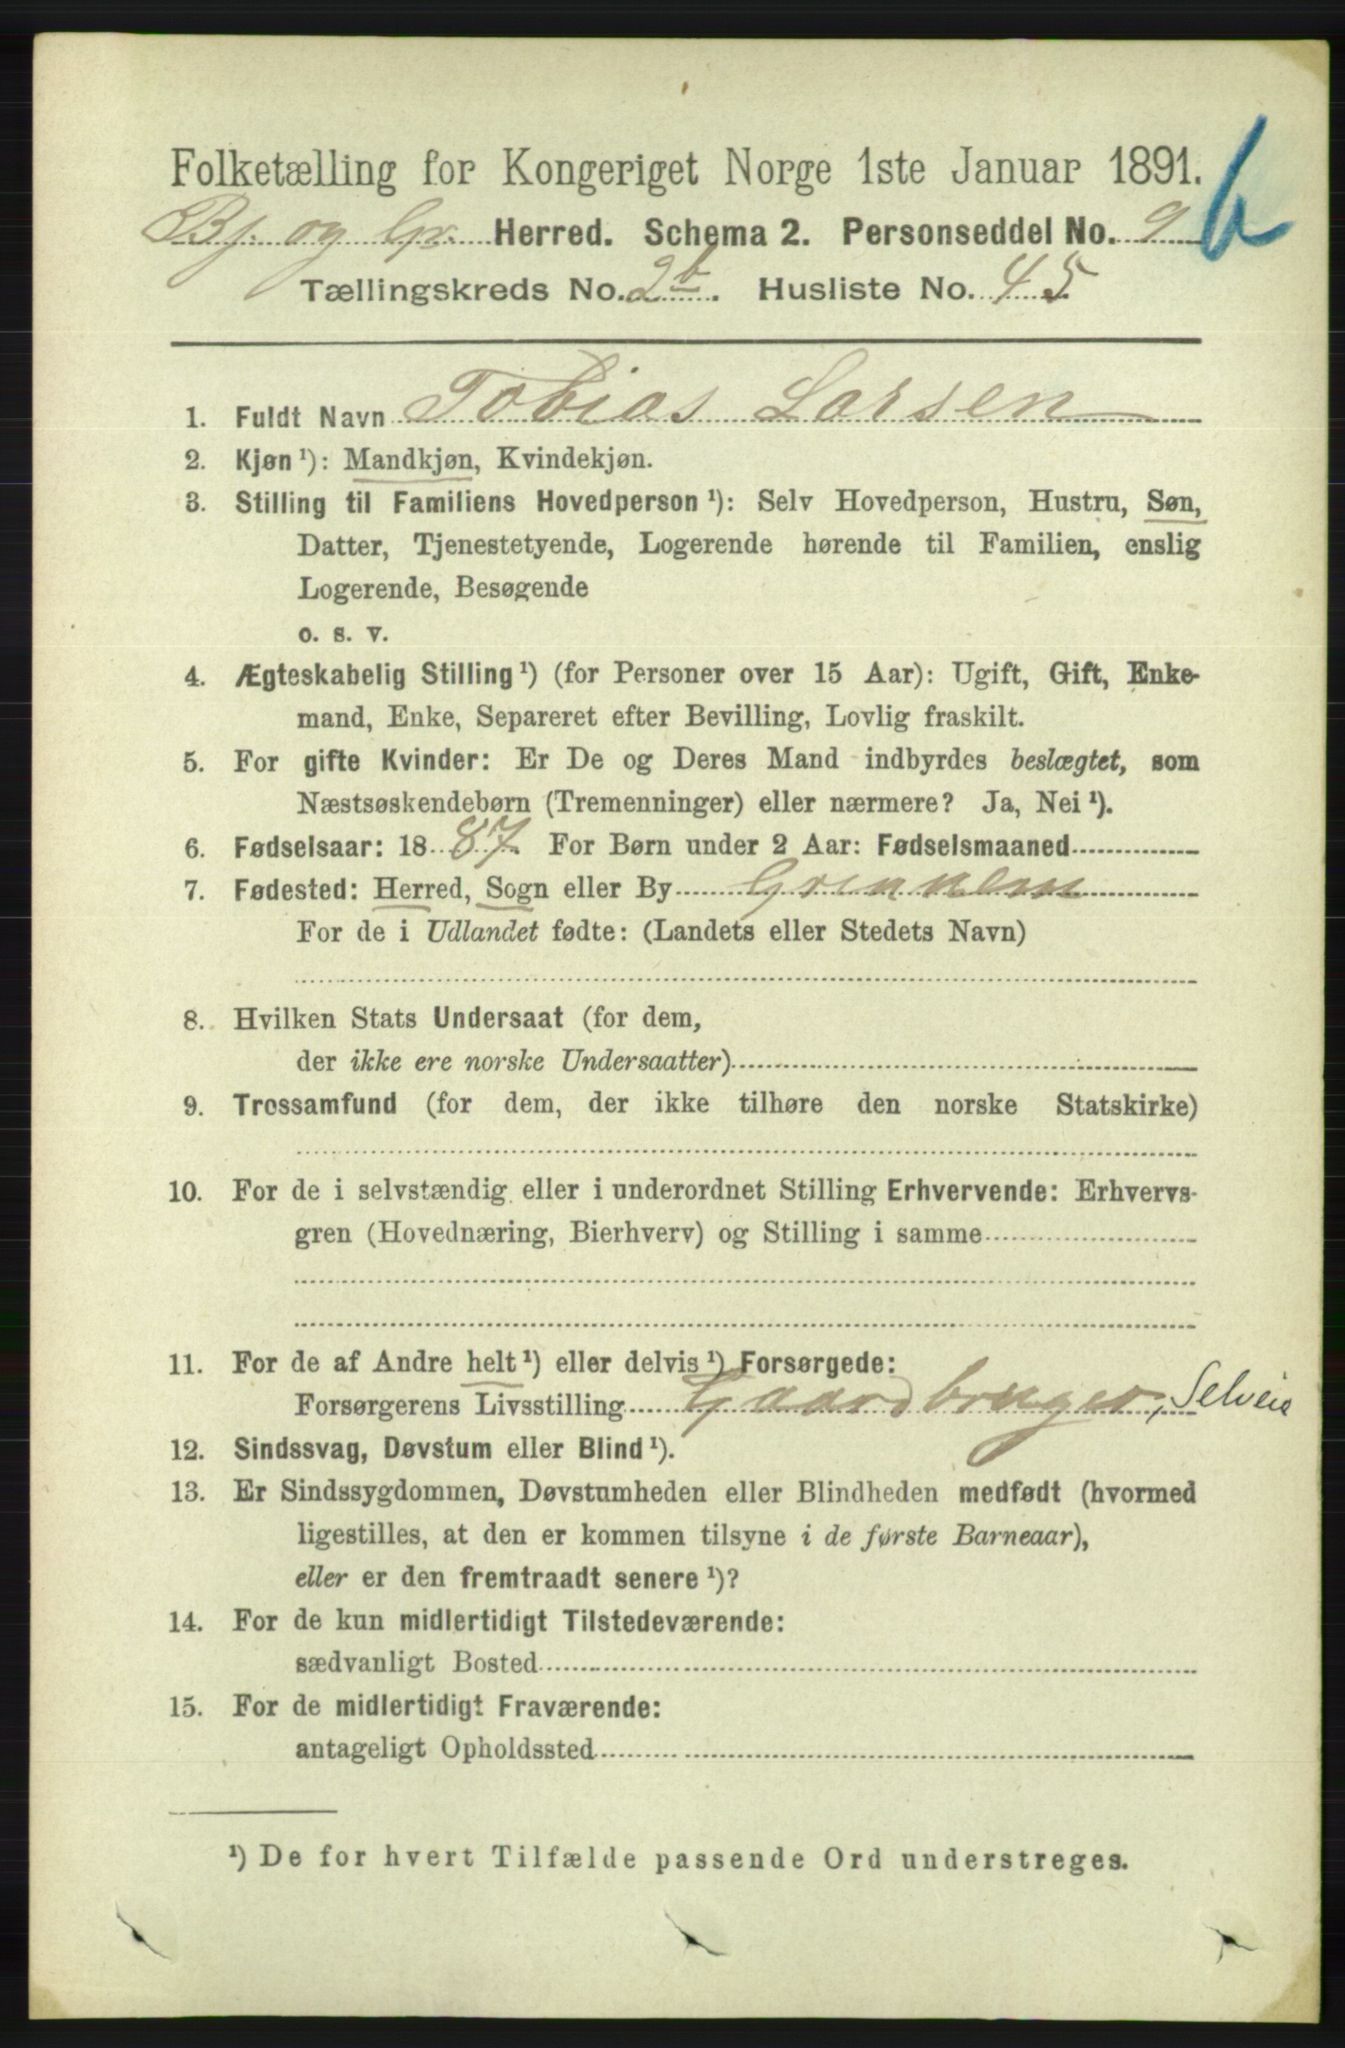 Folketælling for Kongeriget Norge 1ste Januar 1891.
Bj. og Gr. Herred. Schema 2. Personseddel No. 9
Tællingskreds No. 2b. Husliste No. 45
1. Fuldt Navn Tobias Larsen
2. Kjøn ¹): Mandkjøn, Kvindekjøn.
3. Stilling til Familiens Hovedperson ¹): Selv Hovedperson, Hustru, Søn,
Datter, Tjenestetyende, Logerende hørende til Familien, enslig
Logerende, Besøgende
o. s. v.
4. Ægteskabelig Stilling ¹) (for Personer over 15 Aar): Ugift, Gift, Enke-
mand, Enke, Separeret efter Bevilling, Lovlig fraskilt.
5. For gifte Kvinder: Er De og Deres Mand indbyrdes beslægtet, som
Næstsøskendebørn (Tremenninger) eller nærmere? Ja, Nei ¹).
6. Fødselsaar: 1887. For Børn under 2 Aar: Fødselsmaaned
7. Fødested: Herred, Sogn eller By
For de i Udlandet fødte: (Landets eller Stedets Navn)
8. Hvilken Stats Undersaat (for dem,
der ikke ere norske Undersaatter)
9. Trossamfund (for dem, der ikke tilhøre den norske Statskirke)
10. For de i selvstændig eller i underordnet Stilling Erhvervende: Erhvervs-
gren (Hovednæring, Bierhverv) og Stilling i samme
11. For de af Andre helt ¹) eller delvis ¹) Forsørgede:
Forsørgerens Livsstilling Gaardbruger, Selveie
12. Sindssvag, Døvstum eller Blind ¹).
13. Er Sindssygdommen, Døvstumheden eller Blindheden medfødt (hvormed
ligestilles, at den er kommen tilsyne i de første Barneaar),
eller er den fremtraadt senere ¹)?
14. For de kun midlertidigt Tilstedeværende:
sædvanligt Bosted
15. For de midlertidigt Fraværende:
antageligt Opholdssted
¹) De for hvert Tilfælde passende Ord understreges.